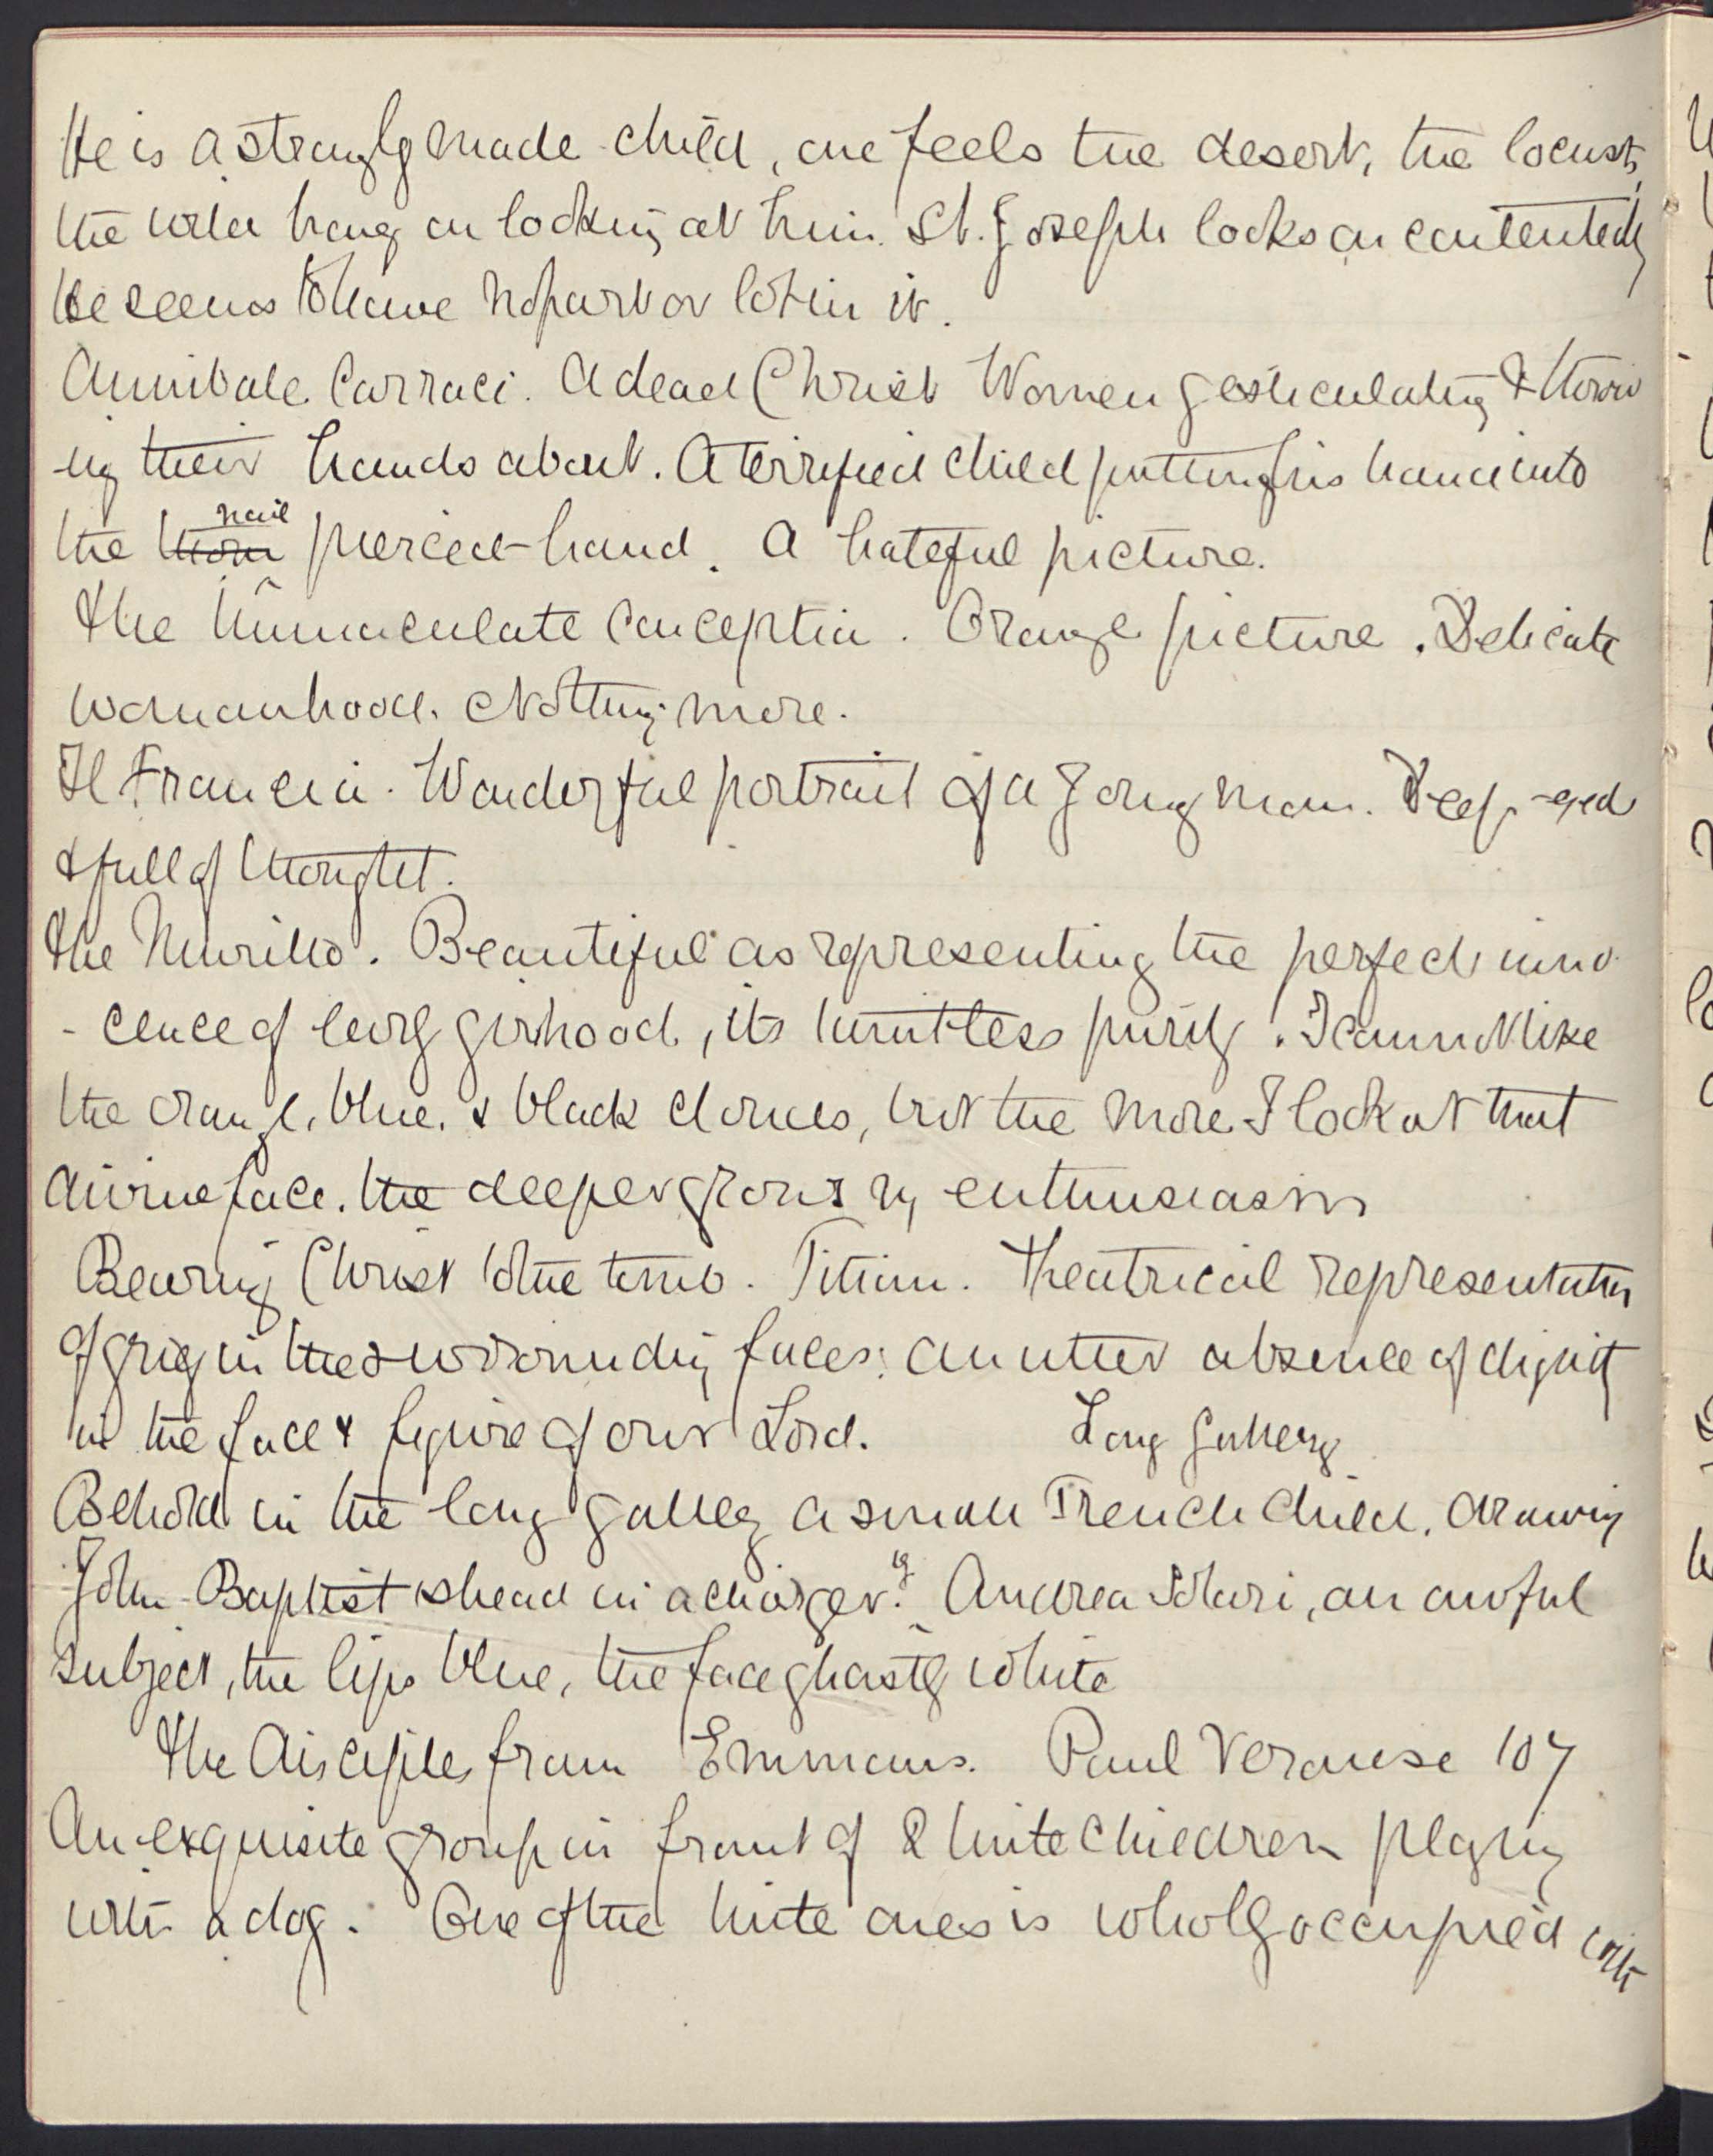 He is a strongly made child, one feels the desert, the locusts,
the wild honey on looking at him. St. Joseph looks on contentedly
He seems to have no part or lot in it.
Annibale Carraci. A dead Christ Women gesticulating & throw
ing their hands about. A terrified child putting his hand into
the thorn nail pierced-hand. A hateful picture.
The Immaculate Conception. Orange picture. Delicate
womanhood. Nothing more.
Il Francia. Wonderful portrait of a young man. Deep-eyed
& full of thought.
The Murillo. Beautiful as representing the perfect inno
- cence of early girlhood, its limitless purity. I cannot like
the orange, blue, & black clouds, but the more I look at that
divine face, the deeper grows my enthusiasm
Bearing Christ to the tomb. Titian. Theatrical representation
of grief in the surrounding faces; an utter absence of dignity
in the face & figure of our Lord. Long Gallery
Behold in the long gallery a small French child, drawing
John Baptist's head in a charger. by Andrea Solari, an awful
subject, the lips blue, the face ghastly white
The Disciples from Emmaus. Paul Veronese 107
An exquisite group in front of 2 little children playing
with a dog. One of the little ones is wholly occupied with